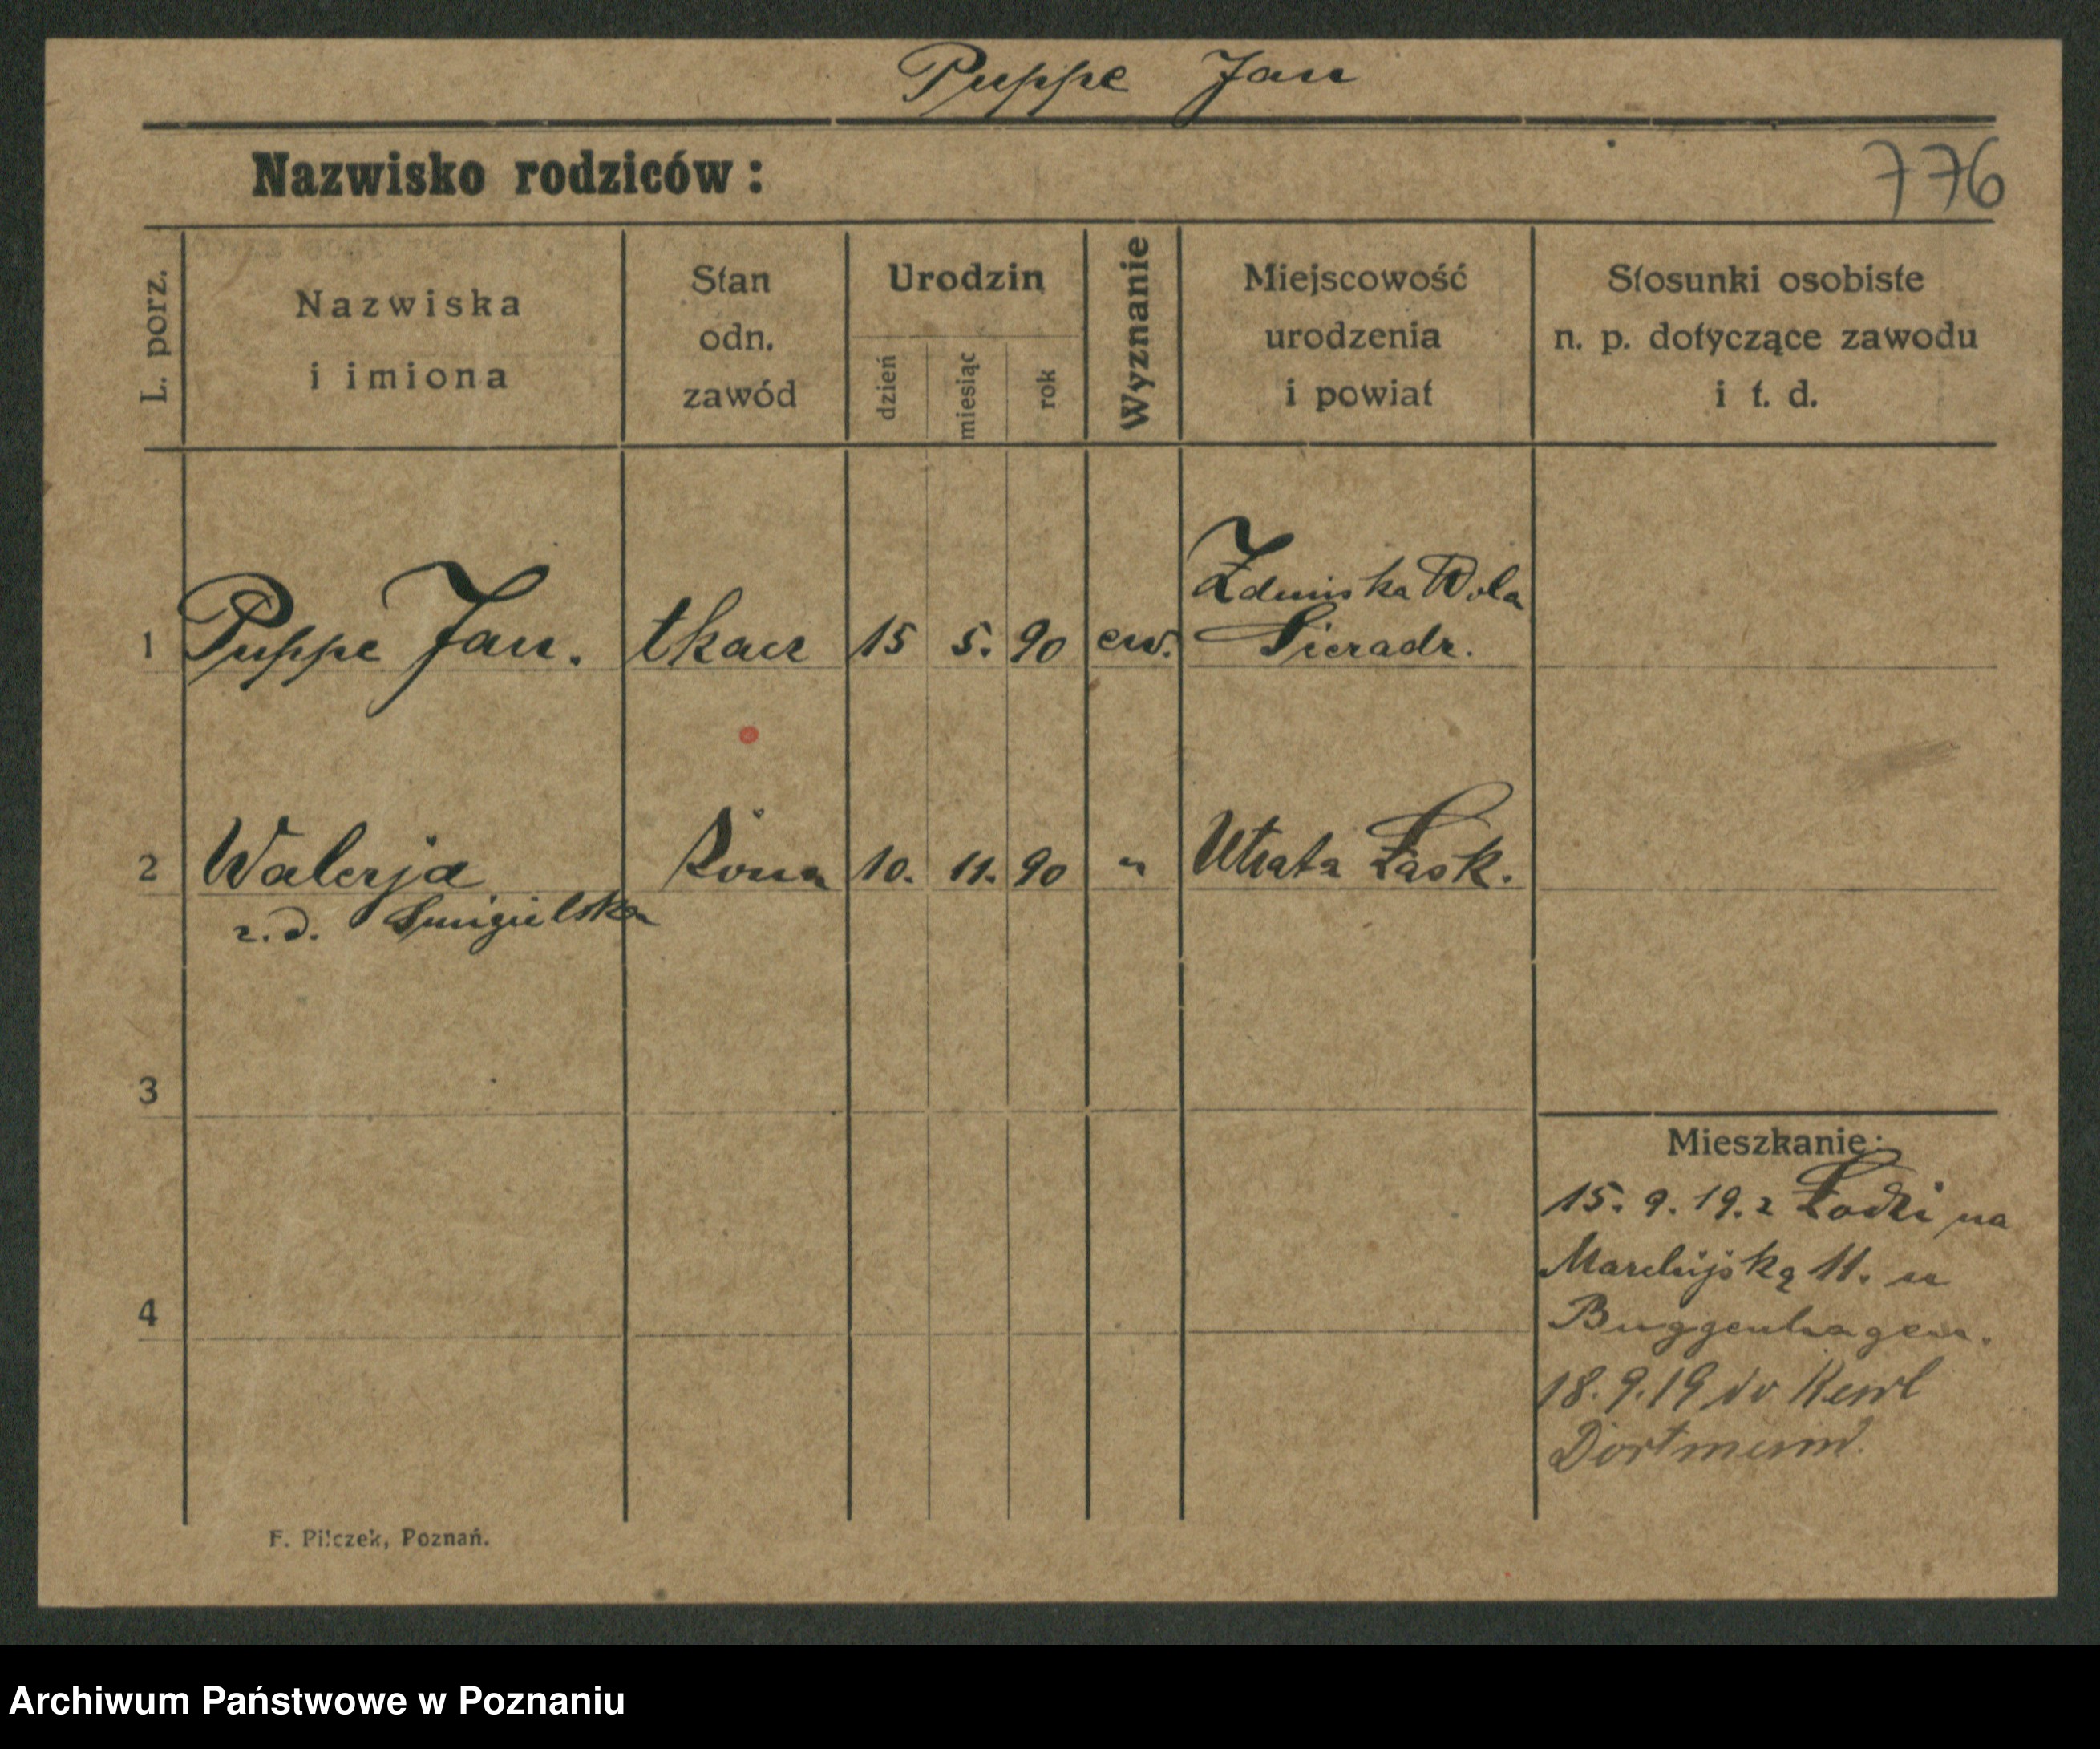 Puppe Jan
Nazwisko rodziców:
776
L. porz.
Nazwiska
i imiona
Stan
odn.
zawód
Urodzin
dzień
miesiąc
rok
Wyznanie
Miejscowość
urodzenia
i powiat
Stosunki osobiste
n. p. dotyczące zawodu
i t. d.
1 Puppe Jan. tkacz 15 5. 90 ew. Zduńska Wola
Sieradz.
2 Walerja żona 10. 11. 90 " Utrata Łask.
z. d. Śmigielska
3
4
Mieszkanie:
15. 9. 19. z Łodzi na
11. u
Buggenhagen.
18. 9. 19 do
Dortmund.
F. Pilczek, Poznań.
Archiwum Państwowe w Poznaniu